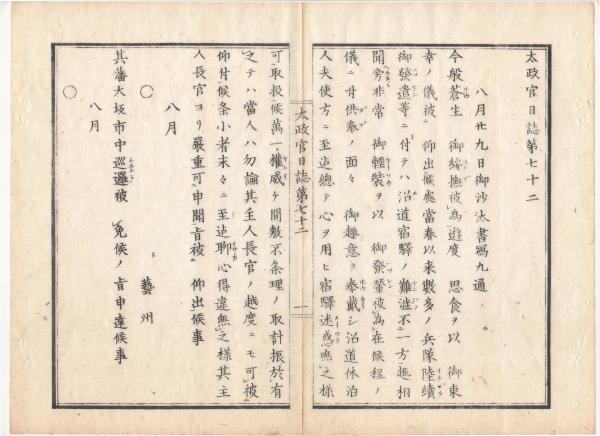 太政官日誌第七十二
八月廿九日御沙汰書冩九通
今般蒼生　御綏撫被爲遊度　思食ヲ以　御東
幸ノ儀被　仰出候處當春以來數多ノ兵隊陸續
御發遣等ニ付テハ沿道宿驛ノ難澁不一方趣相
聞旁非常　御輕裝ヲ以　御發輦被爲在候程ノ
儀ニ付供奉ノ面々　御趣意ヲ奉戴シ沿道休泊
人夫使方ニ至迠總テ心ヲ用ヒ宿驛迷惑無之様
太政官日誌第七十二　一
可取扱候萬一權威ケ間敷不条理ノ取計振於有
之テハ當人ハ勿論其主人長官ノ越度ニモ可被
仰付候条小者末々ニ至迠聊心得違無之様其主
人長官ヨリ嚴重可申聞旨被　仰出候事
八月
○　藝州
其藩大坂市中巡邏被　免候ノ旨申達候事
八月
○